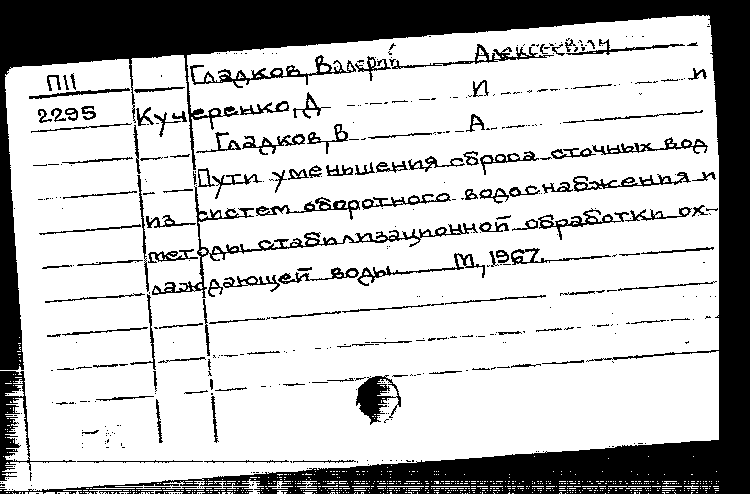 П11 Гладков, Валерий Алексеевич
2295 Кучеренко, Д И и
Гладков, В А
Пути уменьшения сброса сточных вод
из систем оборотного водоснабжения и
методы стабилизационной обработки ох-
лаждающей воды. М., 1967.